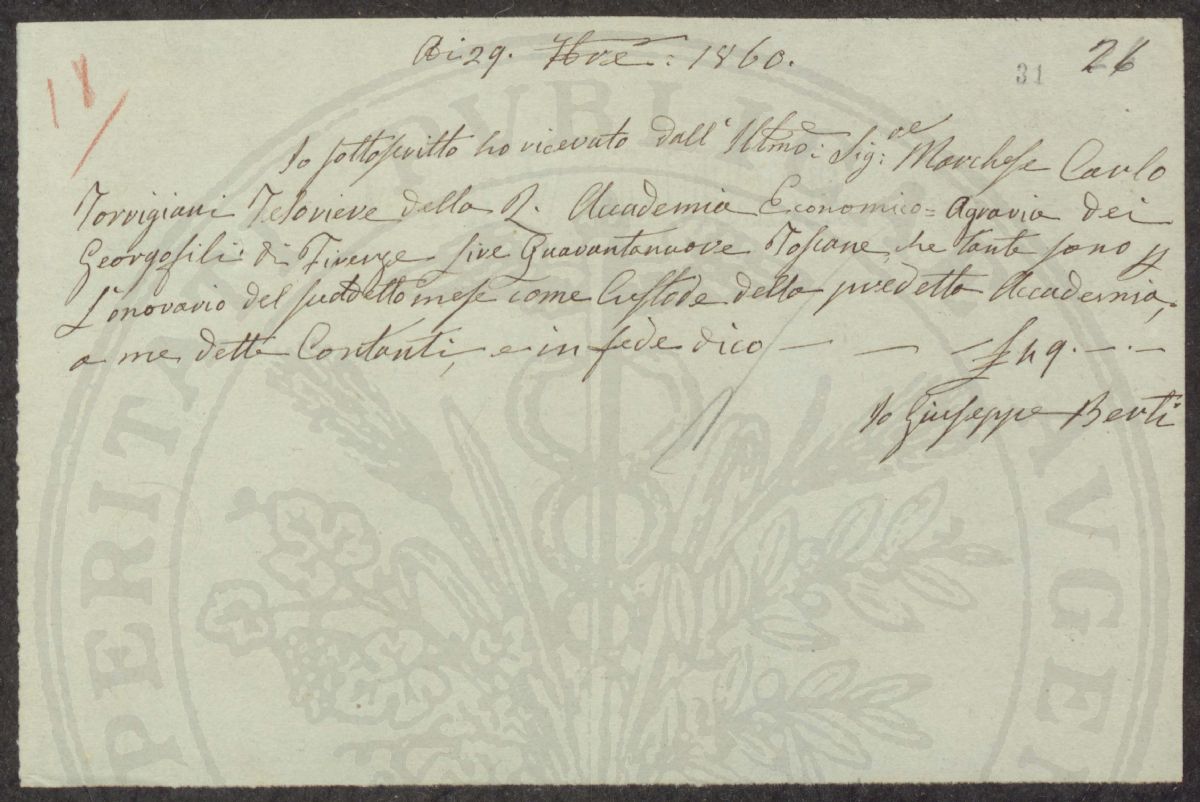 Di 29. 7bre: 1860.
31
26
18
Io sottoscritto ho ricevuto dall' Illmo: Sig:re Marchese Carlo
Torrigiani Tesoriere della R. Accademia Economico=Agraria dei
Georgofili di Firenze Lire Quarantanuove Toscane, che tante sono p
L'onorario del suddetto mese come Custode della predetta Accademia,
a me dette Contanti, e in fede dico — — — £ 49. — . —
Io Giuseppe Berti
PERITAT PUBLIC AUGE